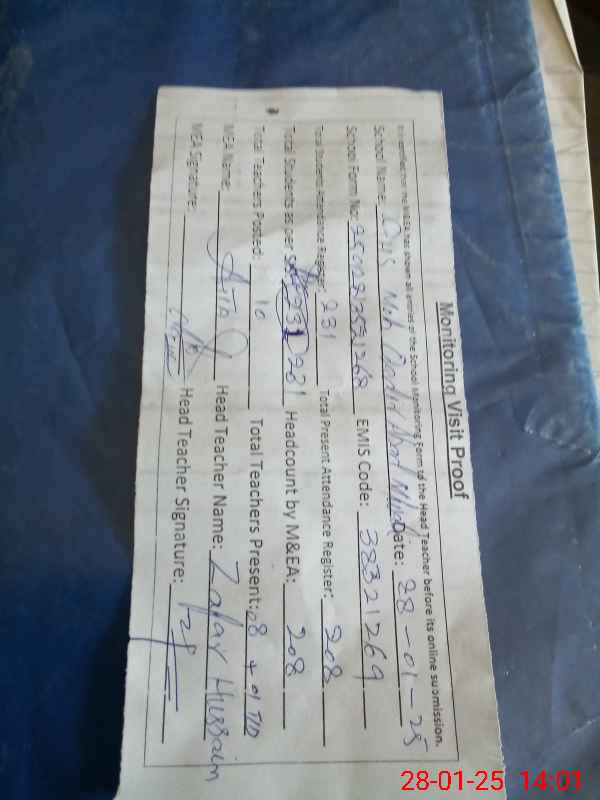 Monitoring Visit Proof
It is certified that the M&EA has shown all entries of the School Monitoring Form to the Head Teacher before its online submission.
School Name: Date: 28-01-25
School Form No: EMIS Code: 38321269
Total Students Attendance Register: 231 Total Present Attendance Register: 208
Total Students as per 231 Headcount by M&EA: 208
Total Teachers Posted: 10 Total Teachers Present: 08 + 01
MEA Name: Head Teacher Name: Zafar Hussain
MEA Signature: Head Teacher Signature:
28-01-25 14:01